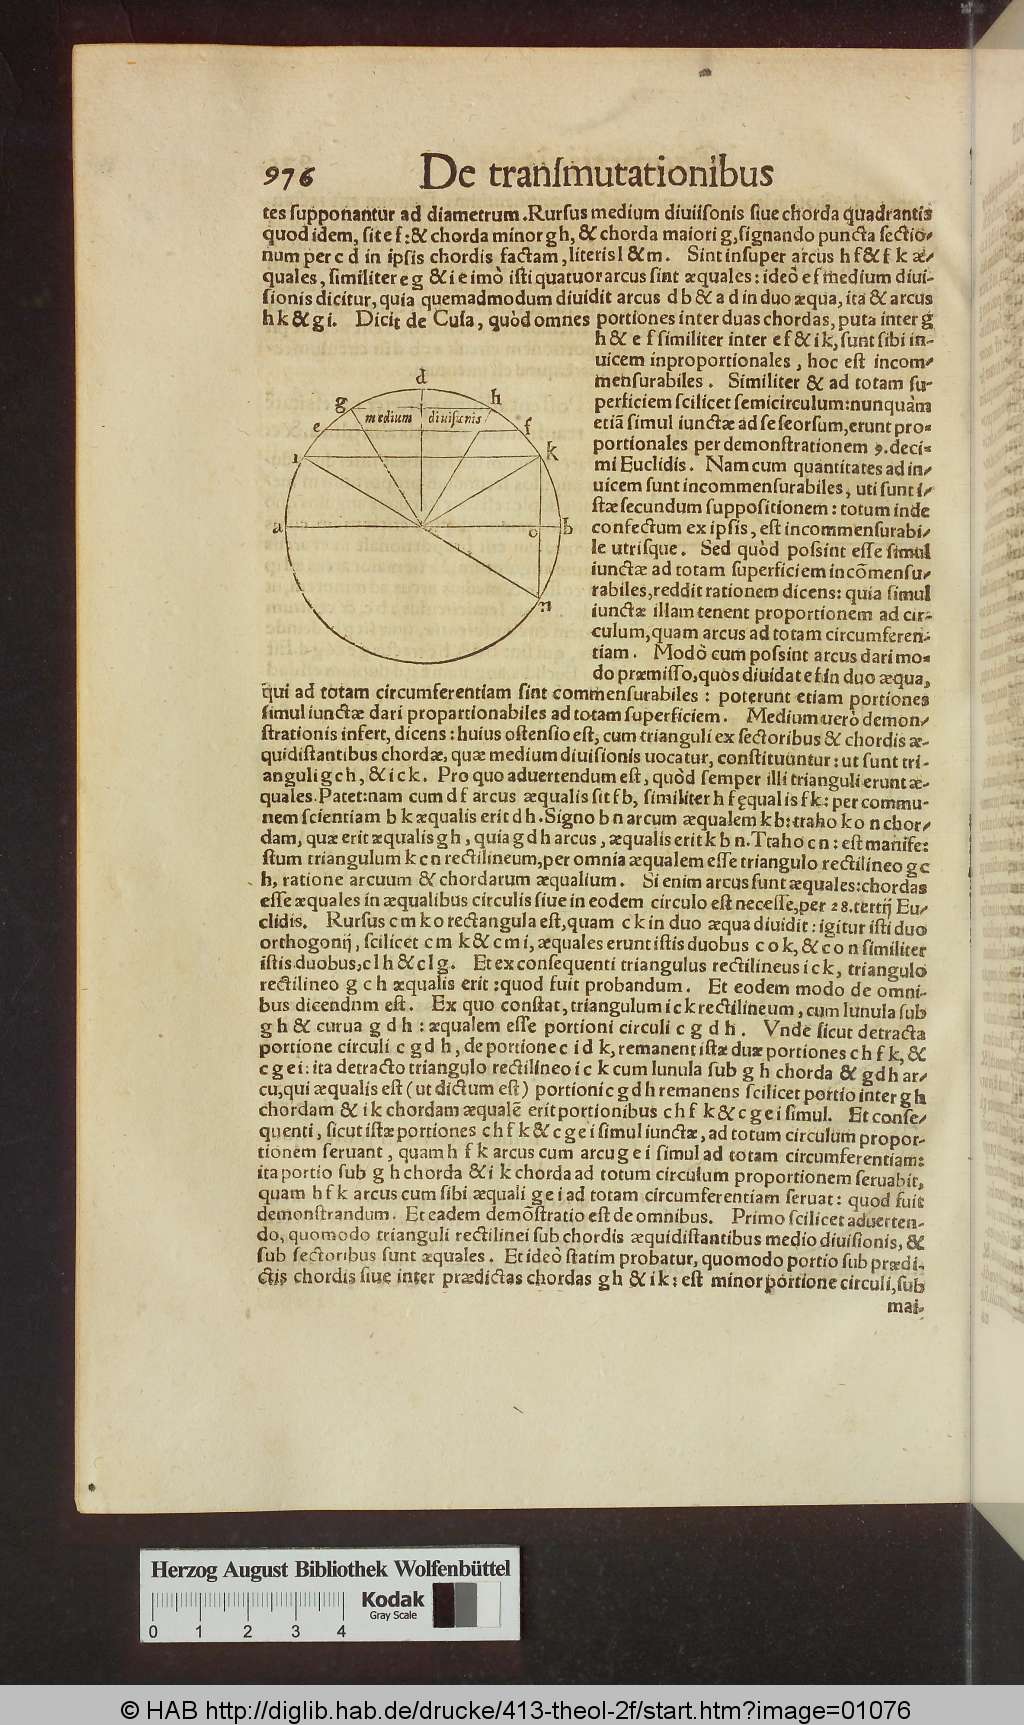 976 De tranſmutationibus
tes ſupponantur ad diametrum. Rurſus medium diuiiſonis ſiue chorda quadrantis
quod idem, ſit e f: & chorda minor g h, & chorda maior i g, ſignando puncta ſectio-
num per c d in ipſis chordis factam, literis l & m. Sint inſuper arcus h f & f k æ-
quales, ſimiliter e g & i e imò iſti quatuor arcus ſint æquales: ideò e f medium diui-
ſionis dicitur, quia quemadmodum diuidit arcus d b & a d in duo æqua, ita & arcus
h k & g i. Dicit de Cuſa, quòd omnes portiones inter duas chordas, puta inter g
h & e f ſimiliter inter e f & i k, ſunt ſibi in-
uicem inproportionales, hoc eſt incom-
menſurabiles. Similiter & ad totam ſu-
perficiem ſcilicet ſemicirculum: nunquàm
etiã ſimul iunctæ ad ſe ſeorſum, erunt pro-
portionales per demonſtrationem 9. deci-
mi Euclidis. Nam cum quantitates ad in-
uicem ſunt incommenſurabiles, uti ſunt i-
ſtæ ſecundum ſuppoſitionem: totum inde
confectum ex ipſis, eſt incommenſurabi-
le utriſque. Sed quòd poſsint eſſe ſimul
iunctæ ad totam ſuperficiem incõmenſu-
rabiles, reddit rationem dicens: quia ſimul
iunctæ illam tenent proportionem ad cir-
culum, quam arcus ad totam circumferen-
tiam. Modò cum poſsint arcus dari mo-
do præmiſſo, quos diuidat e f in duo æqua,
d
g
h
medium diuiſinis
e
f
i
k
a
o
b
n
qui ad totam circumferentiam ſint commenſurabiles: poterunt etiam portiones
ſimul iunctæ dari propartionabiles ad totam ſuperficiem. Medium uerò demon-
ſtrationis infert, dicens: huius oſtenſio eſt, cum trianguli ex ſectoribus & chordis æ-
quidiſtantibus chordæ, quæ medium diuiſionis uocatur, conſtituuntur: ut ſunt tri-
anguli g c h, & i c k. Pro quo aduertendum eſt, quòd ſemper illi trianguli erunt æ-
quales. Patet: nam cum d f arcus æqualis ſit f b, ſimiliter h f ęqualis f k: per commu-
nem ſcientiam b k æqualis erit d h. Signo b n arcum æqualem k b: traho k o n chor-
dam, quæ erit æqualis g h, quia g d h arcus, æqualis erit k b n. Traho c n: eſt manife-
ſtum triangulum k c n rectilineum, per omnia æqualem eſſe triangulo rectilineo g c
h, ratione arcuum & chordarum æqualium. Si enim arcus ſunt æquales: chordas
eſſe æquales in æqualibus circulis ſiue in eodem circulo eſt neceſſe, per 28. tertij Eu-
clidis. Rurſus c m k o rectangula eſt, quam c k in duo æqua diuidit: igitur iſti duo
orthogonij, ſcilicet c m k & c m i, æquales erunt iſtis duobus c o k, & c o n ſimiliter
iſtis duobus, c l h & c l g. Et ex conſequenti triangulus rectilineus i c k, triangulo
rectilineo g c h æqualis erit: quod fuit probandum. Et eodem modo de omni-
bus dicendum eſt. Ex quo conſtat, triangulum i c k rectilineum, cum lunula ſub
g h & curua g d h: æqualem eſſe portioni circuli c g d h. Vnde ſicut detracta
portione circuli c g d h, de portione c i d k, remanent iſtæ duæ portiones c h f k, &
c g e i: ita detracto triangulo rectilineo i c k cum lunula ſub g h chorda & g d h ar-
cu, qui æqualis eſt (ut dictum eſt) portioni c g d h remanens ſcilicet portio inter g h
chordam & i k chordam æqualẽ erit portionibus c h f k & c g e i ſimul. Et conſe-
quenti, ſicut iſtæ portiones c h f k & c g e i ſimul iunctæ, ad totum circulum propor-
tionem ſeruant, quam h f k arcus cum arcu g e i ſimul ad totam circumferentiam:
ita portio ſub g h chorda & i k chorda ad totum circulum proportionem ſeruabit,
quam h f k arcus cum ſibi æquali g e i ad totam circumferentiam ſeruat: quod fuit
demonſtrandum. Et eadem demõſtratio eſt de omnibus. Primo ſcilicet aduerten-
do, quomodo trianguli rectilinei ſub chordis æquidiſtantibus medio diuiſionis, &
ſub ſectoribus ſunt æquales. Et ideò ſtatim probatur, quomodo portio ſub prædi-
ctis chordis ſiue inter prædictas chordas g h & i k: eſt minor portione circuli, ſub
mai-
Herzog August Bibliothek Wolfenbüttel
Kodak
Gray Scale
0 1 2 3 4
© HAB http://diglib.hab.de/drucke/413-theol-2f/start.htm?image=01076